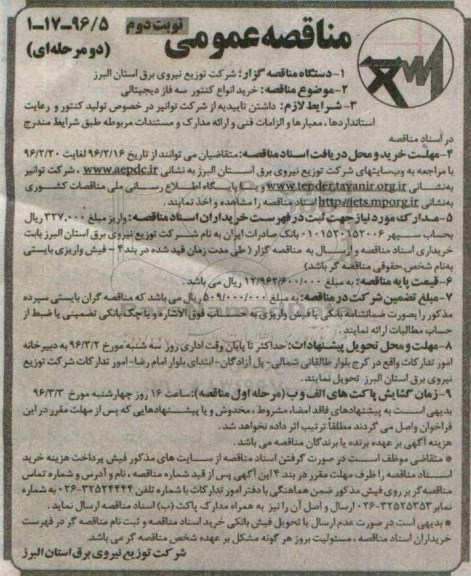 مناقصه عمومی
نوبت دوم
۱-۱۷-۹۶/۵
(دو مرحله‌ای)
۱-دستگاه مناقصه گزار: شرکت توزیع نیروی برق استان البرز
۲-موضوع مناقصه: خرید انواع کنتور سه فاز دیجیتالی
۳-شرایط لازم: داشتن تاییدیه از شرکت توانیر در خصوص تولید کنتور و رعایت
استانداردها، معیارها و الزامات فنی و ارائه مدارک و مستندات مربوطه طبق شرایط مندرج
در اسناد مناقصه
۴-مهلت خرید و محل دریافت اسناد مناقصه: متقاضیان می توانند از تاریخ ۹۶/۲/۱۶ لغایت ۹۶/۲/۲۰
با مراجعه به وب‌سایتهای شرکت توزیع نیروی برق استان البرز به نشانی www.aepdc.ir ، شرکت توانیر
به‌نشانی www.tender.tavanir.org.ir و یا پایگاه اطلاع رسانی ملی مناقصات کشوری
به‌نشانی http://iets.mporg.ir اسناد مناقصه را مشاهده و اخذ نمایند.
۵-مدارک مورد نیاز جهت ثبت در فهرست خریداران اسناد مناقصه: واریز مبلغ ۳۲۷،۰۰۰ ریال
بحساب سپهر ۰۱۰۱۵۲۰۱۵۲۰۰۶ بانک صادرات ایران به نام شرکت توزیع نیروی برق استان البرز بابت
خریداری اسناد مناقصه و ارسال به مناقصه گزار (طی مدت زمان قید شده در بند۴ - فیش واریزی بایستی
به‌نام شخص حقوقی مناقصه گر باشد)
۶-قیمت پایه مناقصه: به مبلغ ۱۲/۹۶۲/۶۰۰/۰۰۰ ریال می باشد.
۷-مبلغ تضمین شرکت در مناقصه: به مبلغ ۵۰۹/۰۰۰/۰۰۰ ریال می باشد که مناقصه گران بایستی سپرده
مذکور را بصورت ضمانتنامه بانکی یا فیش واریزی به حساب فوق الاشاره و یا چک بانکی تضمینی یا ضبط از
حساب مطالبات ارائه نمایند.
۸-مهلت و محل تحویل پیشنهادات: حداکثر تا پایان وقت اداری روز سه شنبه مورخ ۹۶/۳/۲ به دبیرخانه
امور تدارکات واقع در کرج بلوار طالقانی شمالی- پل آزادگان- ابتدای بلوار امام رضا- امور تدارکات شرکت توزیع
نیروی برق استان البرز تحویل نمایند.
۹-زمان گشایش پاکت های الف و ب (مرحله اول مناقصه): ساعت ۱۶ روز چهارشنبه مورخ ۹۶/۳/۳
بدیهی است به پیشنهادهای فاقد امضاء، مشروط، مخدوش و یا پیشنهادهایی که پس از مهلت مقرر در این
فراخوان واصل می گردند مطلقاً ترتیب اثر داده نخواهد شد.
هزینه آگهی بر عهده برنده یا برندگان مناقصه می باشد.
* متقاضی موظف است در صورت گرفتن اسناد مناقصه از سایت های مذکور فیش پرداخت هزینه خرید
اسناد مناقصه را ظرف مهلت مقرر در بند ۴ این آگهی پس از قید شماره مناقصه، نام و آدرس و شماره تماس
مناقصه‌گر بر روی فیش مذکور ضمن هماهنگی با دفتر امور تدارکات با شماره تلفن ۳۲۵۲۴۴۴۴-۰۲۶ به شماره
نمابر ۳۲۵۲۵۳۵۳-۰۲۶ ارسال و اصل آن را نیز به همراه مدارک پاکت (ب) اسناد مناقصه ارسال نماید.
* بدیهی است در صورت عدم ارسال یا تحویل فیش بانکی خرید اسناد مناقصه و ثبت نام مناقصه گر در فهرست
خریداران اسناد مناقصه، مسئولیت بروز هر گونه مشکل بر عهده شخص مناقصه گر می باشد.
شرکت توزیع نیروی برق استان البرز